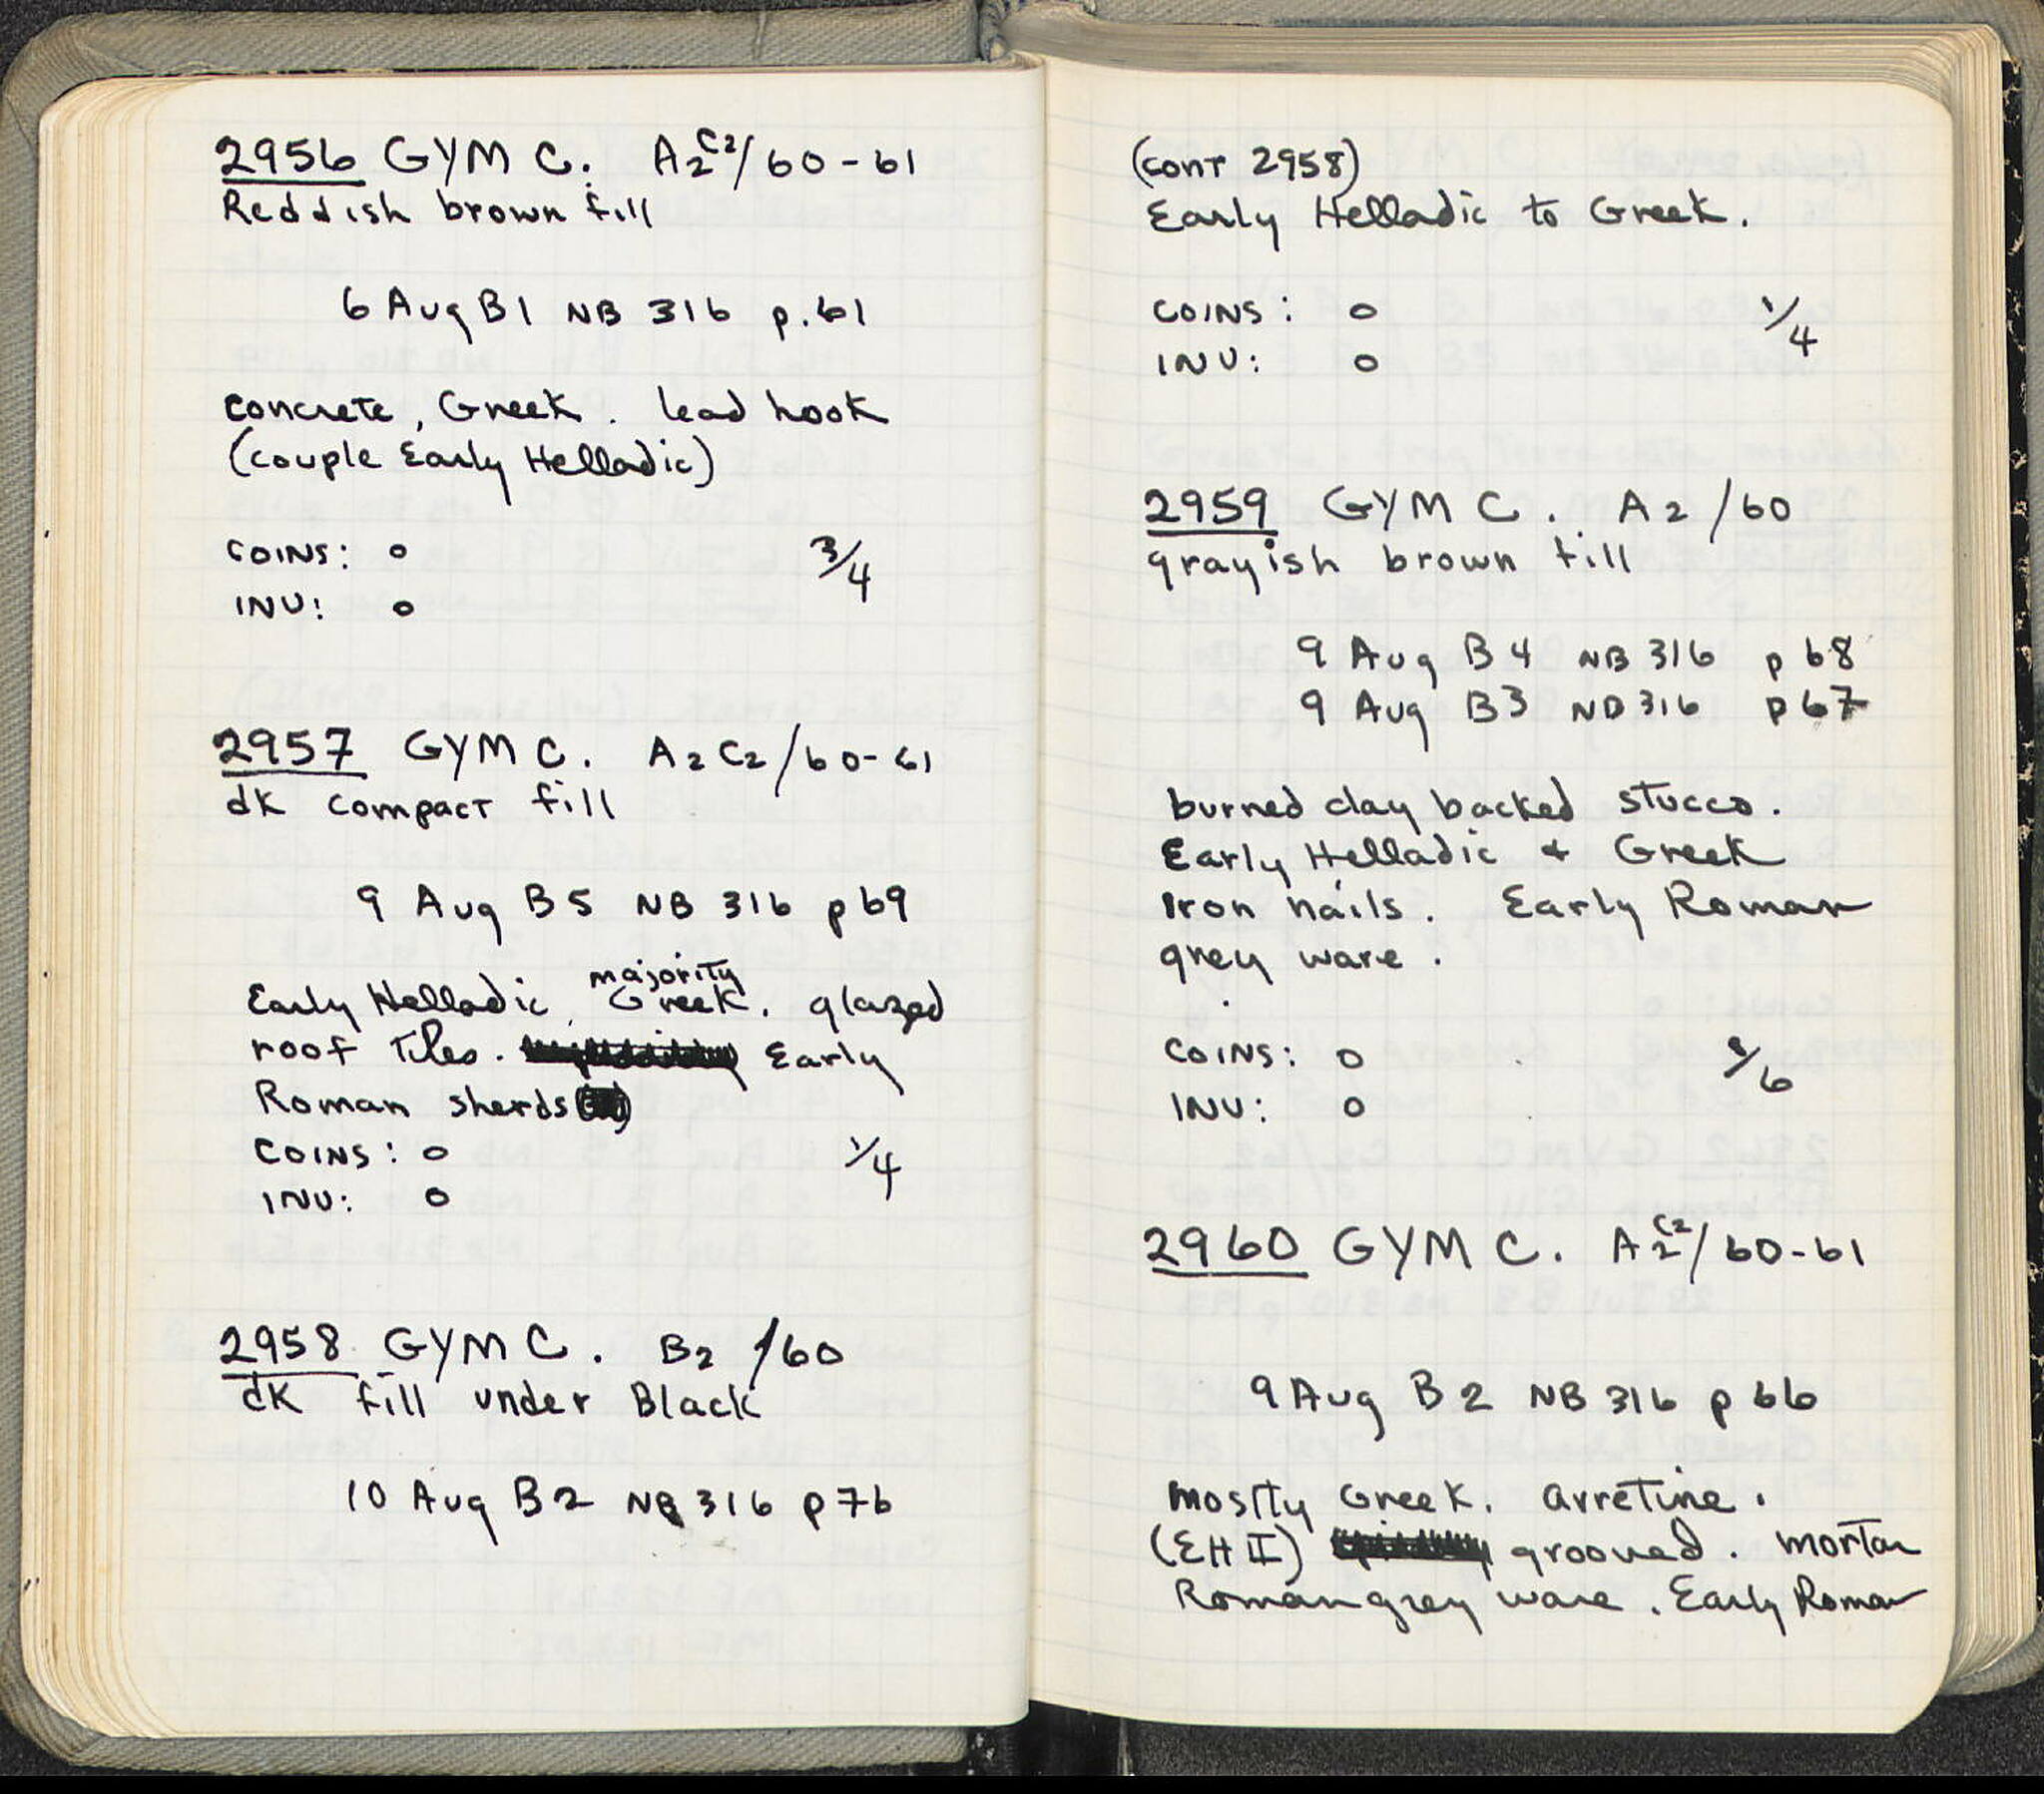 2956 GYM C. A2C2/60-61
Reddish brown fill
6 Aug B1 NB 316 p.61
concrete, Greek. lead hook
(couple Early Helladic)
COINS: 0 3/4
INV: 0
2957 GYM C. A2C2/60-61
dk compact fill
9 Aug B5 NB 316 p69
majority
Early Helladic, Greek. glazed
roof tiles. Early
Roman sherds
COINS: 0 1/4
INV: 0
2958 GYM C. B2/60
dk fill under Black
10 Aug B2 NB 316 p76
(cont 2958)
Early Helladic to Greek.
COINS: 0 1/4
INV: 0
2959 GYM C. A2/60
grayish brown fill
9 Aug B4 NB 316 p68
9 Aug B3 NB 316 p67
burned clay backed stucco.
Early Helladic + Greek
Iron nails. Early Roman
grey ware.
COINS: 0
INV: 0
2960 GYM C. A2C2/60-61
9 Aug B2 NB 316 p66
mostly Greek. Arretine.
(EH II) grooved. mortar
Roman grey ware. Early Roman